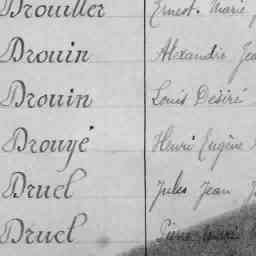 Drouiller Ernest. Marie
Drouin Alexandre Jea
Drouin Louis Désiré
Drouyé Henri Eugène
Druel Jules Jean J
Druel Pierre